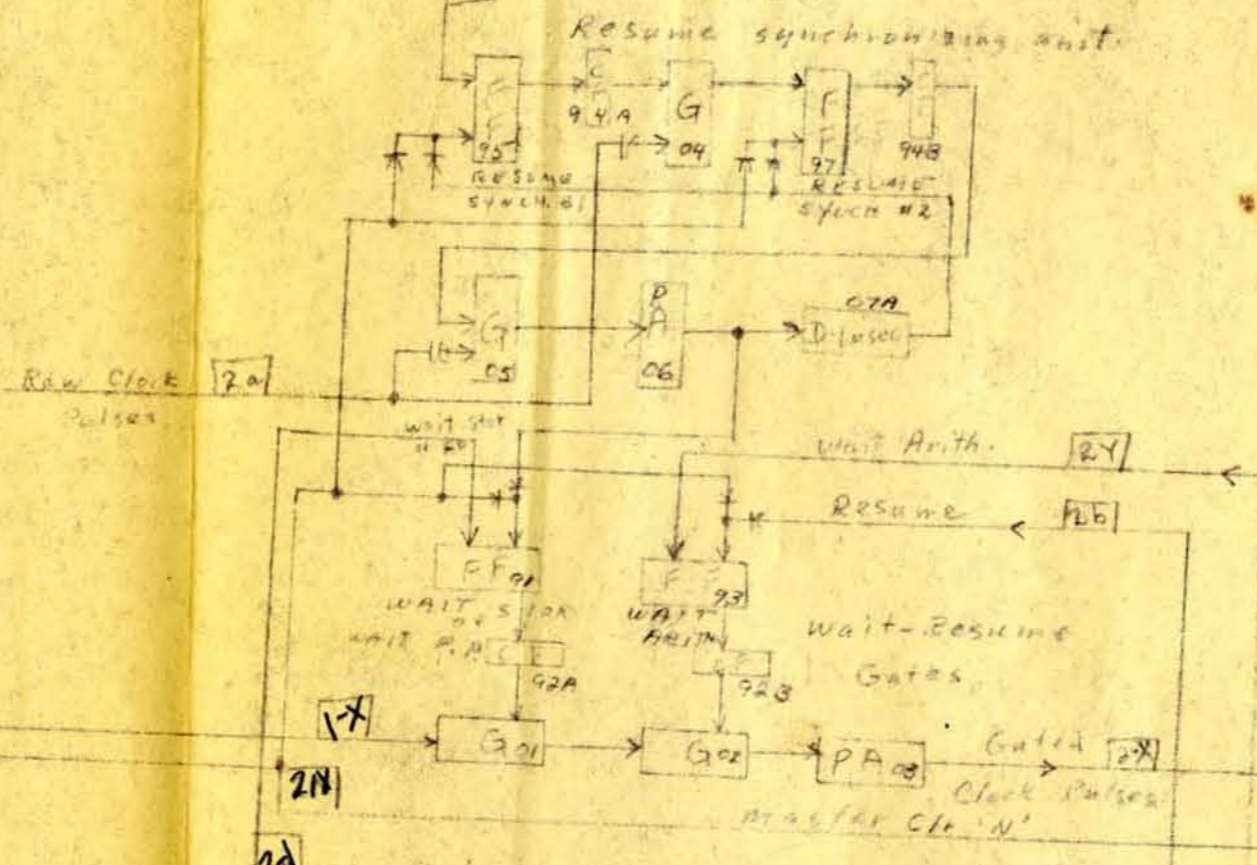 Resume synchronizing unit.
FF
95
RESUME
SYNCH. #1
C
94A
G
04
FF
97
RESUME
SYNCH #2
94B
G
05
P
A
06
07A
D-1 µsec
Raw Clock
Pulses
2a
Wait Stor
Wait Arith.
2Y
Resume
2b
FF 91
WAIT STOR
or
WAIT P.P.
C F
92A
FF 93
WAIT
ARITH
92B
Wait-Resume
Gates
1-X
G 01
G 02
PA 03
Gated
Clock Pulses
2-X
Master Clr 'N'